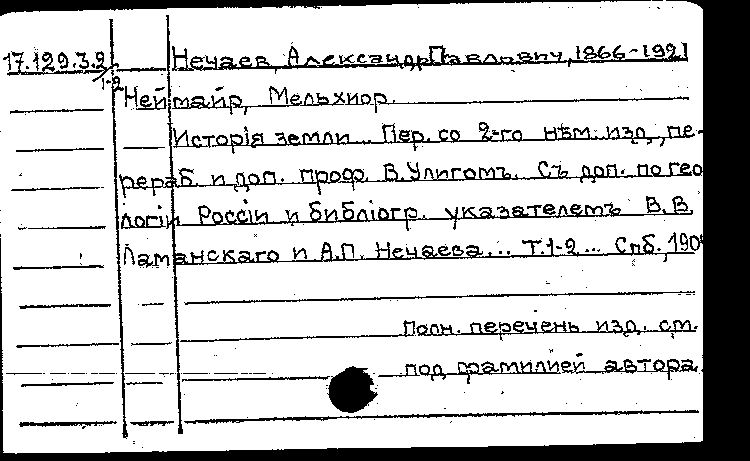 17.129.3.2 Нечаев, Александр Павлович, 1866-1921
1-2
Неймайр, Мельхиор.
Исторія земли... Пер. со 2-го нѣм. изд., пе-
рераб. и доп. проф. В. Улигомъ. Съ доп. по гео
логіи Россіи и библіогр. указателемъ В. В.
Ламанскаго и А.П. Нечаева... Т.1-2... Спб.,
Полн. перечень изд. см.
под фамилией автора.